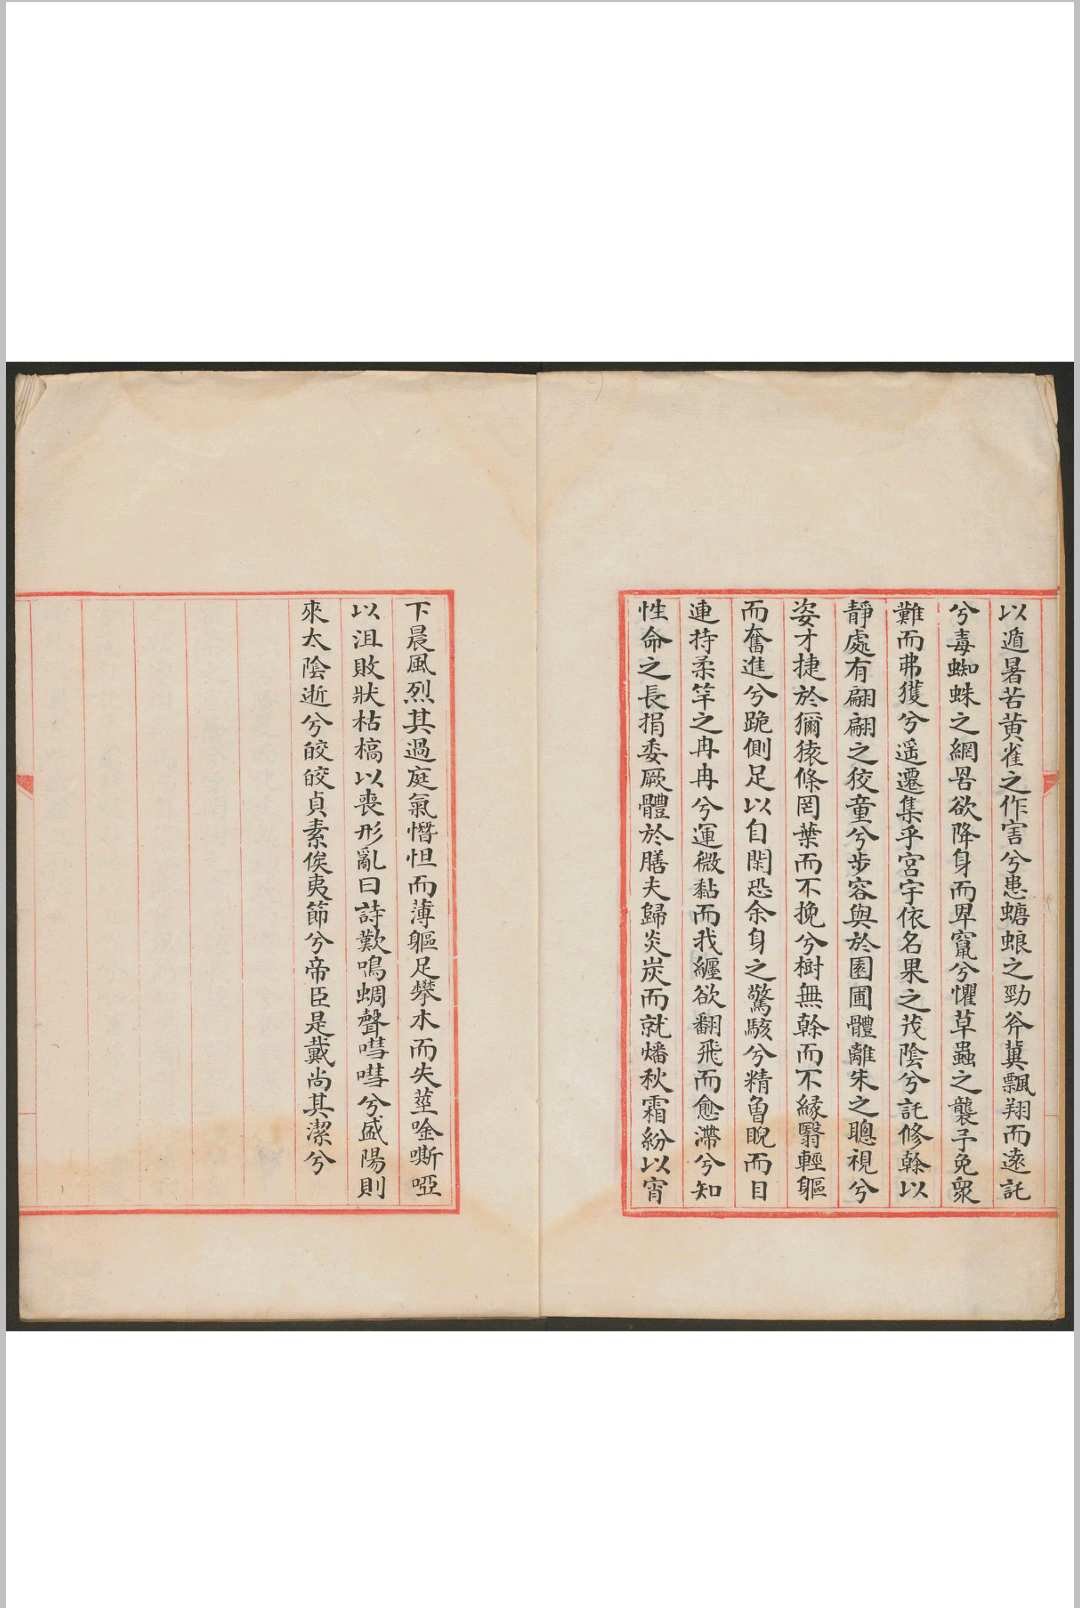 以遁暑苦黄雀之作害兮患螗蜋之勁斧冀飄翔而遠託
兮毒蜘蛛之網罟欲降身而卑竄兮懼草蟲之襲予免衆
難而弗獲兮遥遷集乎宮宇依名果之茂陰兮託修榦以
靜處有翩翩之狡童兮步容與於園圃體離朱之聰視兮
姿才捷於獮猿條罔葉而不挽兮樹無榦而不緣翳輕軀
而奮進兮跪側足以自閑恐余身之驚駭兮精曽睨而目
連持柔竿之冉冉兮運微黏而我纏欲翻飛而愈滯兮知
性命之長捐委厥體於膳夫歸炎炭而就燔秋霜紛以宵
下晨風烈其過庭氣憯怛而薄軀足攀木而失莖唫嘶啞
以沮敗狀枯槁以喪形亂曰詩歎鳴蜩聲嘒嘒兮盛陽則
來太陰逝兮皎皎貞素俟夷節兮帝臣是戴尚其潔兮